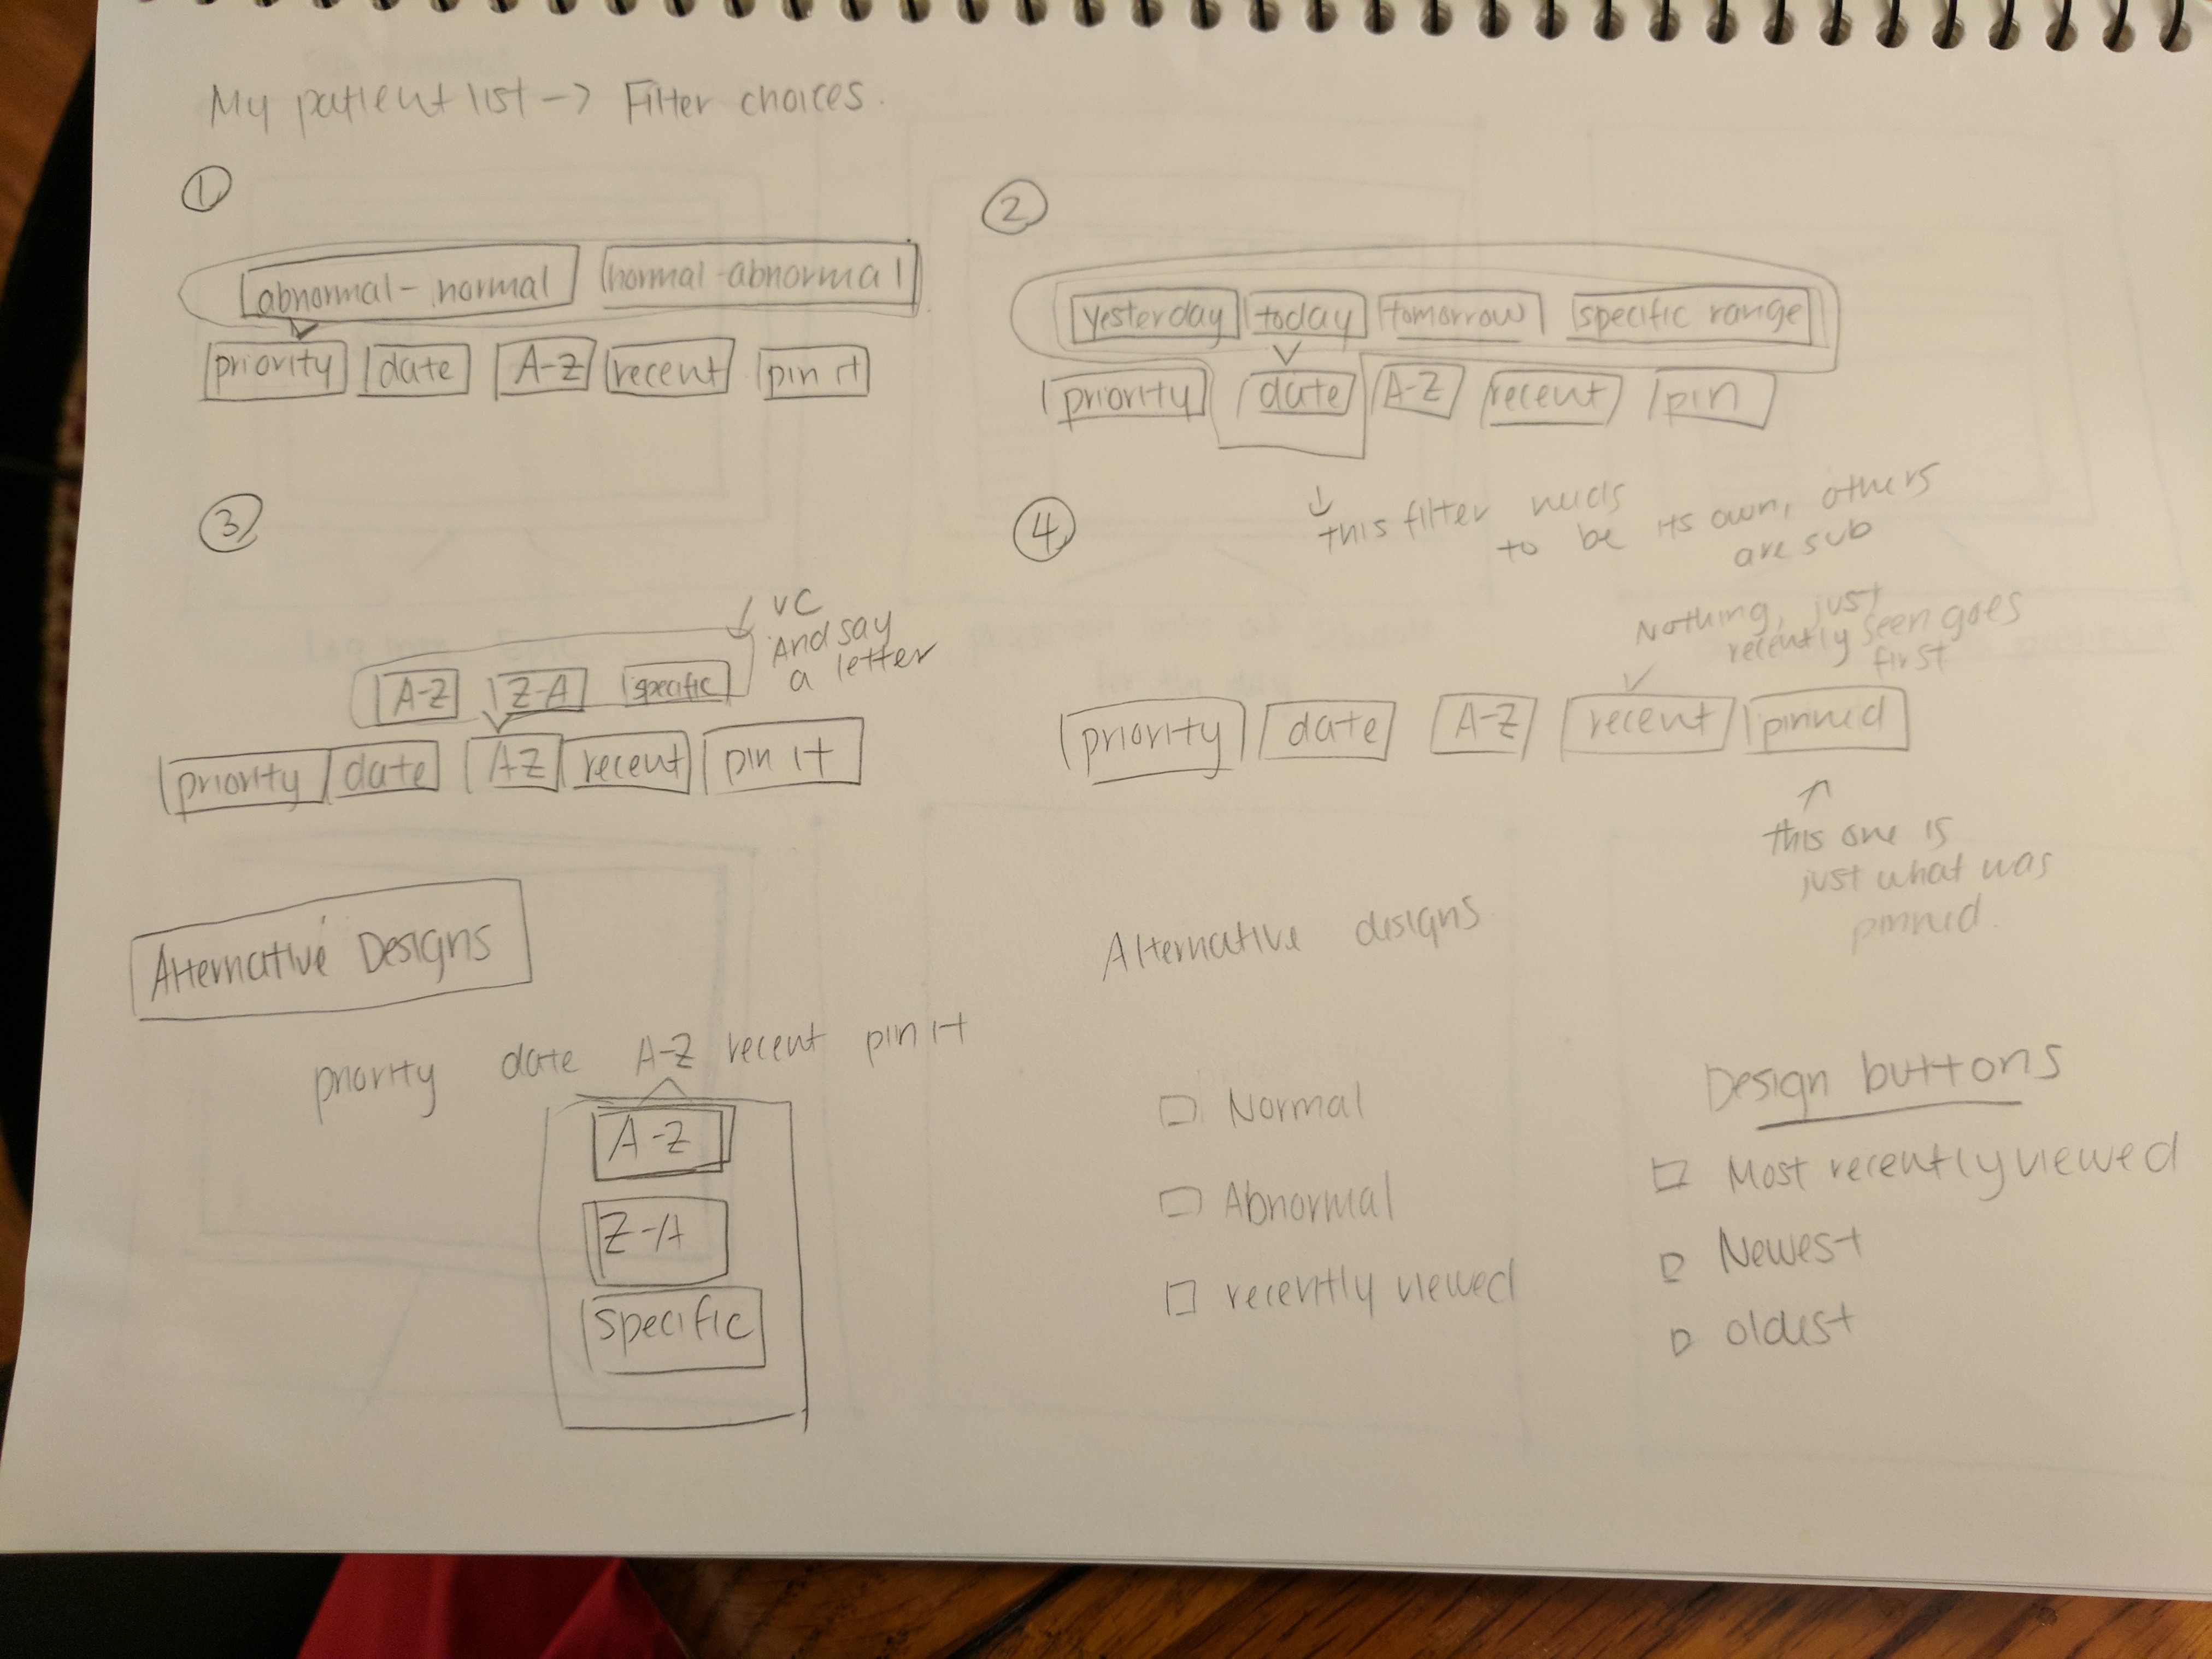 My patient list -> Filter choices.
1
abnormal - normal normal - abnormal
priority date A-Z recent pin it
2
yesterday today tomorrow specific range
priority date A-Z recent pin
this filter needs
to be its own, others
are sub
3
VC
And say
a letter
A-Z Z-A specific
priority date AZ recent pin it
4
Nothing, just
recently seen goes
first
priority date A-Z recent pinned
this one is
just what was
pinned.
Alternative Designs
priority date A-Z recent pin it
A-Z
Z-A
specific
Alternative designs
Normal
Abnormal
recently viewed
Design buttons
Most recently viewed
Newest
oldest